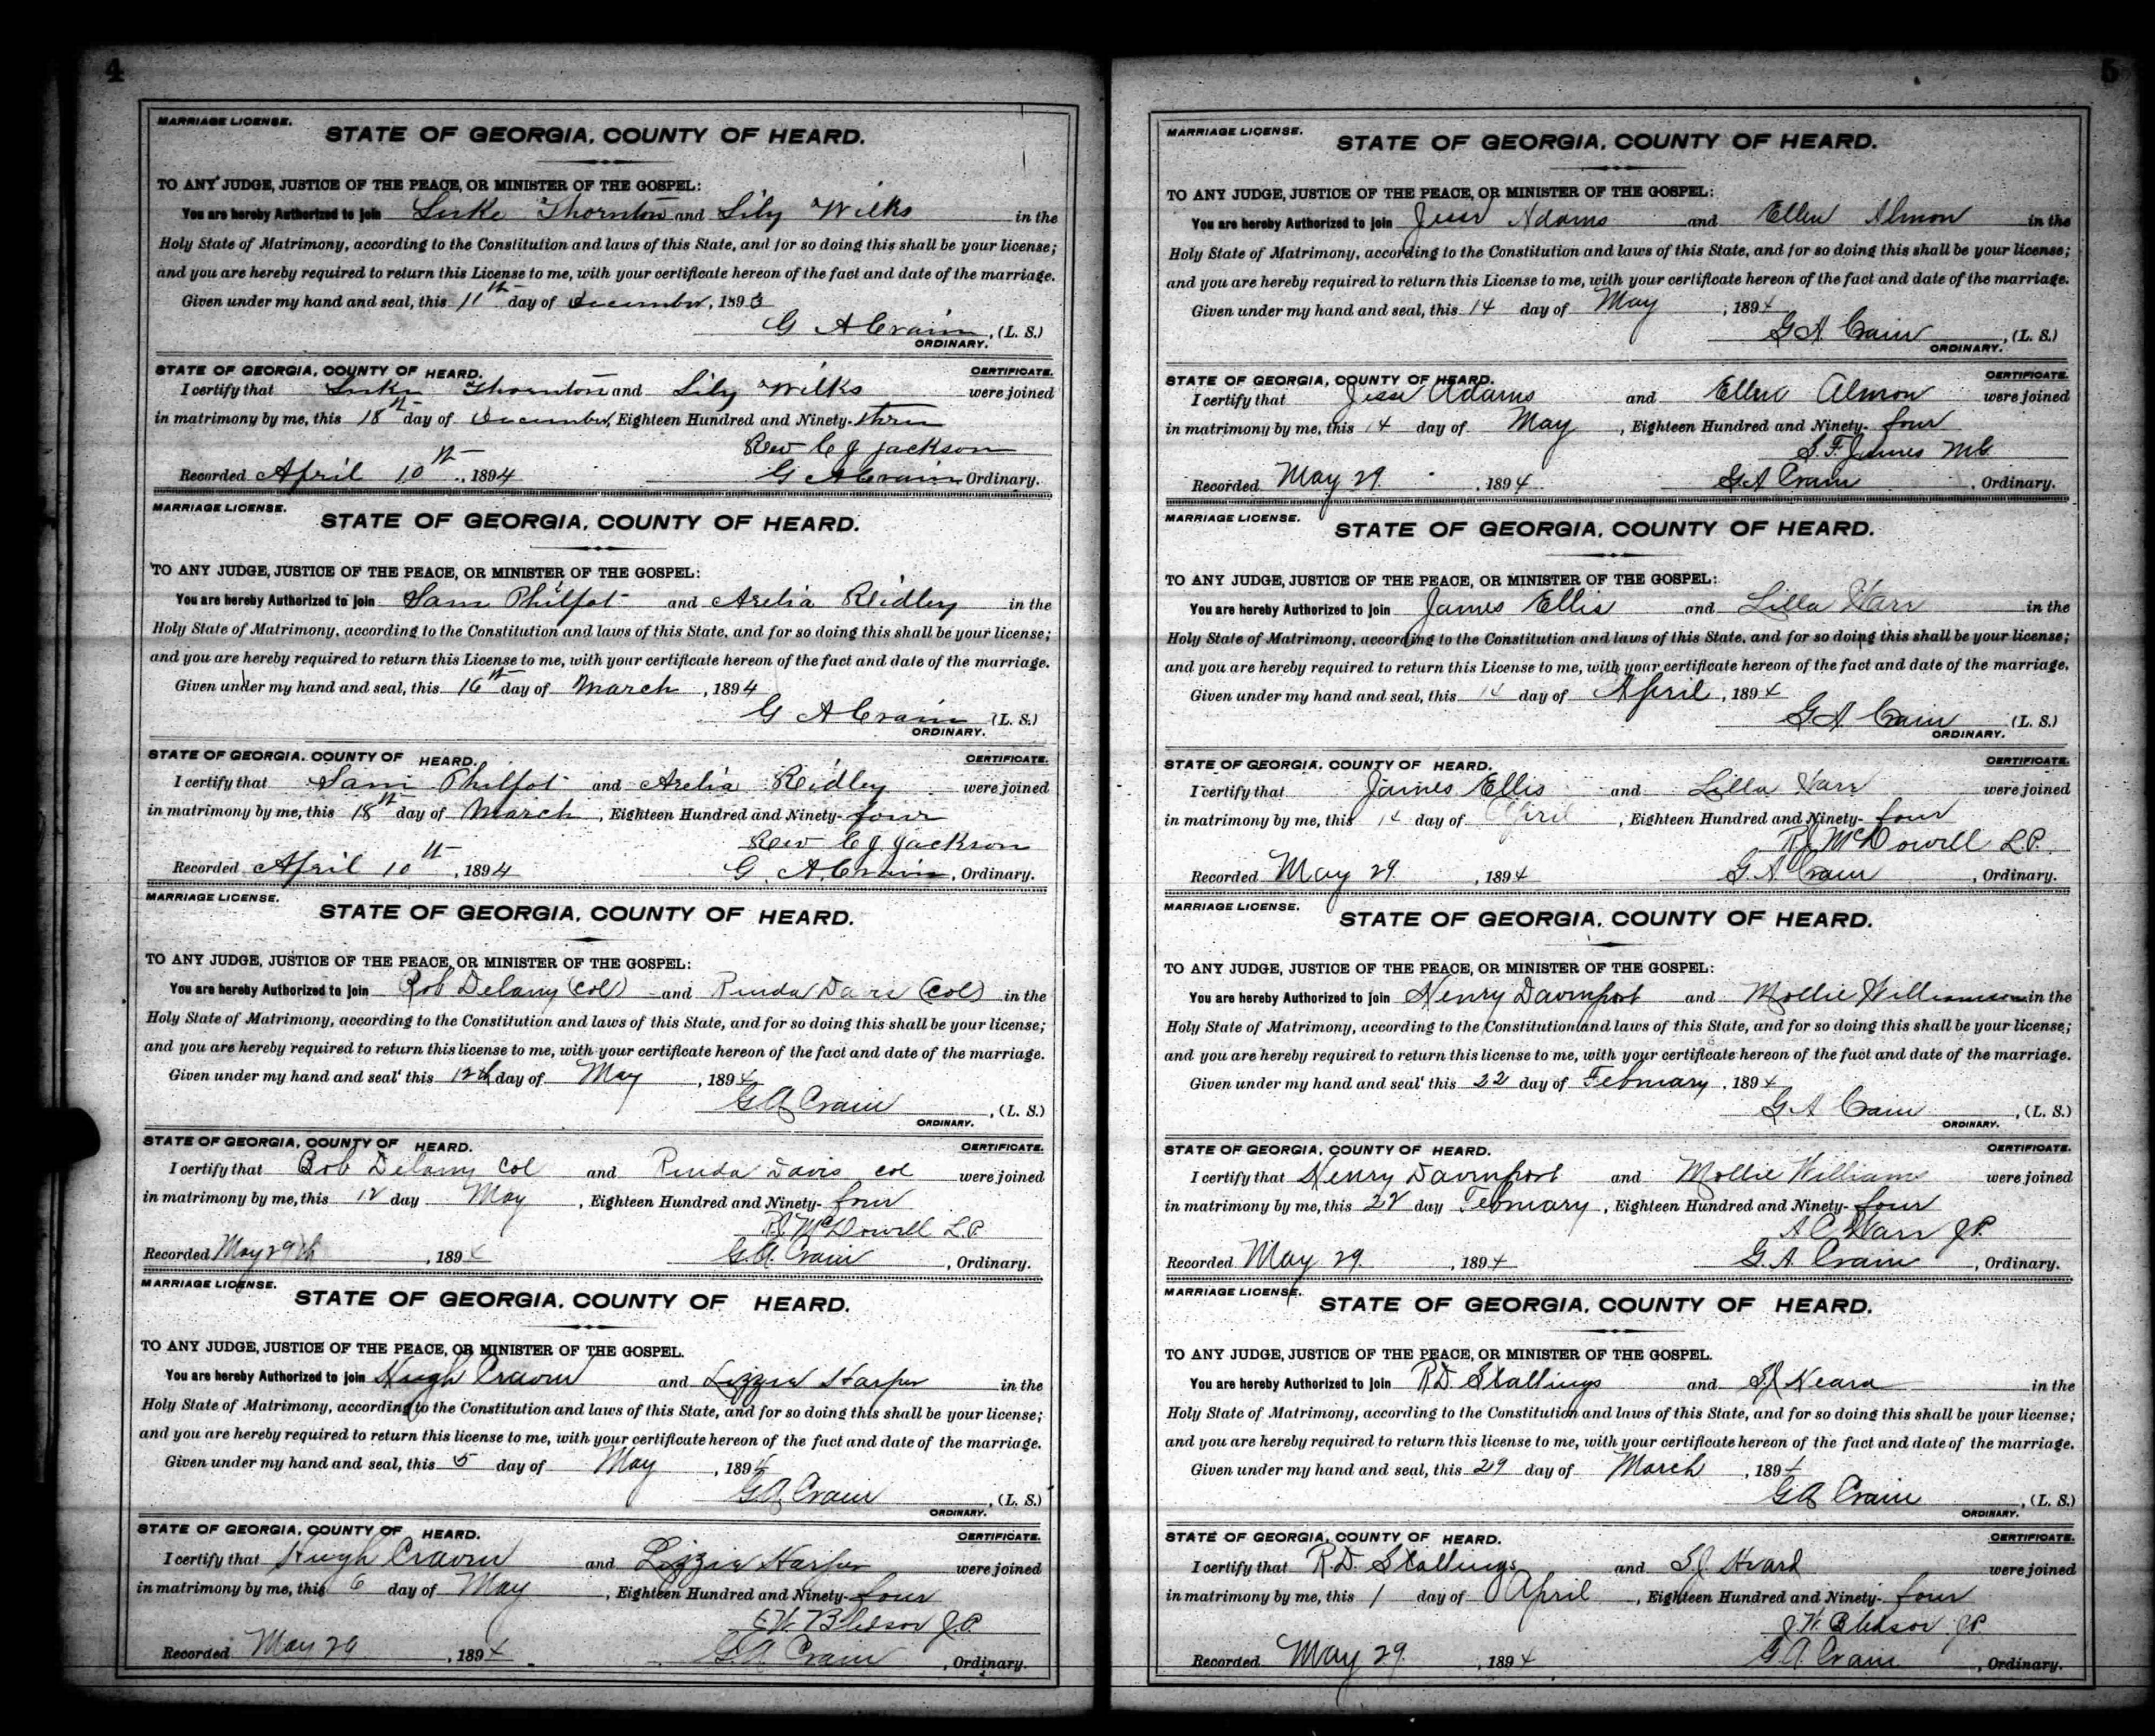 4
MARRIAGE LICENSE.
STATE OF GEORGIA, COUNTY OF HEARD.
TO ANY JUDGE, JUSTICE OF THE PEACE, OR MINISTER OF THE GOSPEL:
You are hereby Authorized to join Luke Thornton and Lily Wilks in the
Holy State of Matrimony, according to the Constitution and laws of this State, and for so doing this shall be your license;
and you are hereby required to return this License to me, with your certificate hereon of the fact and date of the marriage.
Given under my hand and seal, this 11th day of December, 1893
G A Crain, (L. S.)
ORDINARY.
STATE OF GEORGIA, COUNTY OF HEARD. CERTIFICATE.
I certify that Luke Thornton and Lily Wilks were joined
in matrimony by me, this 18th day of December, Eighteen Hundred and Ninety-three
Rev C J Jackson
Recorded April 10th, 1894 G A Crain Ordinary.
MARRIAGE LICENSE.
STATE OF GEORGIA, COUNTY OF HEARD.
TO ANY JUDGE, JUSTICE OF THE PEACE, OR MINISTER OF THE GOSPEL:
You are hereby Authorized to join Sam Philpot and Arelia Reidley in the
Holy State of Matrimony, according to the Constitution and laws of this State, and for so doing this shall be your license;
and you are hereby required to return this License to me, with your certificate hereon of the fact and date of the marriage.
Given under my hand and seal, this 16th day of March, 1894
G A Crain (L. S.)
ORDINARY.
STATE OF GEORGIA, COUNTY OF HEARD. CERTIFICATE.
I certify that Sam Philpot and Arelia Reidley were joined
in matrimony by me, this 18th day of March, Eighteen Hundred and Ninety-four
Rev C J Jackson
Recorded April 10th, 1894 G. A. Crain, Ordinary.
MARRIAGE LICENSE.
STATE OF GEORGIA, COUNTY OF HEARD.
TO ANY JUDGE, JUSTICE OF THE PEACE, OR MINISTER OF THE GOSPEL:
You are hereby Authorized to join Rob Delany (col) and Rinda Davis (col) in the
Holy State of Matrimony, according to the Constitution and laws of this State, and for so doing this shall be your license;
and you are hereby required to return this license to me, with your certificate hereon of the fact and date of the marriage.
Given under my hand and seal' this 12th day of May, 1894
G A Crain, (L. S.)
ORDINARY.
STATE OF GEORGIA, COUNTY OF HEARD. CERTIFICATE.
I certify that Bob Delany col and Rinda Davis col were joined
in matrimony by me, this 12 day May, Eighteen Hundred and Ninety-four
R J McDowell L.P.
Recorded May 29th, 1894 G. A. Crain, Ordinary.
MARRIAGE LICENSE.
STATE OF GEORGIA, COUNTY OF HEARD.
TO ANY JUDGE, JUSTICE OF THE PEACE, OR MINISTER OF THE GOSPEL.
You are hereby Authorized to join Hugh Craven and Lizzie Harper in the
Holy State of Matrimony, according to the Constitution and laws of this State, and for so doing this shall be your license;
and you are hereby required to return this license to me, with your certificate hereon of the fact and date of the marriage.
Given under my hand and seal, this 5 day of May, 1894
G A Crain, (L. S.)
ORDINARY.
STATE OF GEORGIA, COUNTY OF HEARD. CERTIFICATE.
I certify that Hugh Craven and Lizzie Harper were joined
in matrimony by me, this 6 day of May, Eighteen Hundred and Ninety-four
Bledsoe J.P.
Recorded May 29, 1894 G. A. Crain, Ordinary.
5
MARRIAGE LICENSE.
STATE OF GEORGIA, COUNTY OF HEARD.
TO ANY JUDGE, JUSTICE OF THE PEACE, OR MINISTER OF THE GOSPEL:
You are hereby Authorized to join Jesse Adams and Ellen Almon in the
Holy State of Matrimony, according to the Constitution and laws of this State, and for so doing this shall be your license;
and you are hereby required to return this License to me, with your certificate hereon of the fact and date of the marriage.
Given under my hand and seal, this 14 day of May, 1894
G A Crain, (L. S.)
ORDINARY.
STATE OF GEORGIA, COUNTY OF HEARD. CERTIFICATE.
I certify that Jesse Adams and Ellen Almon were joined
in matrimony by me, this 14 day of May, Eighteen Hundred and Ninety-four
S. F. James M.G.
Recorded May 29, 1894 G A Crain, Ordinary.
MARRIAGE LICENSE.
STATE OF GEORGIA, COUNTY OF HEARD.
TO ANY JUDGE, JUSTICE OF THE PEACE, OR MINISTER OF THE GOSPEL:
You are hereby Authorized to join James Ellis and Lilla Harr in the
Holy State of Matrimony, according to the Constitution and laws of this State, and for so doing this shall be your license;
and you are hereby required to return this License to me, with your certificate hereon of the fact and date of the marriage.
Given under my hand and seal, this 14 day of April, 1894
G A Crain (L. S.)
ORDINARY.
STATE OF GEORGIA, COUNTY OF HEARD. CERTIFICATE.
I certify that James Ellis and Lilla Harr were joined
in matrimony by me, this 14 day of April, Eighteen Hundred and Ninety-four
R J McDowell L.P.
Recorded May 29, 1894 G. A Crain, Ordinary.
MARRIAGE LICENSE.
STATE OF GEORGIA, COUNTY OF HEARD.
TO ANY JUDGE, JUSTICE OF THE PEACE, OR MINISTER OF THE GOSPEL:
You are hereby Authorized to join Henry Davenport and Mollie Williamson in the
Holy State of Matrimony, according to the Constitution and laws of this State, and for so doing this shall be your license;
and you are hereby required to return this license to me, with your certificate hereon of the fact and date of the marriage.
Given under my hand and seal' this 22 day of February, 1894
G A Crain, (L. S.)
ORDINARY.
STATE OF GEORGIA, COUNTY OF HEARD. CERTIFICATE.
I certify that Henry Davenport and Mollie Williams were joined
in matrimony by me, this 22 day February, Eighteen Hundred and Ninety-four
A C Harr J.P.
Recorded May 29, 1894 G. A. Crain, Ordinary.
MARRIAGE LICENSE.
STATE OF GEORGIA, COUNTY OF HEARD.
TO ANY JUDGE, JUSTICE OF THE PEACE, OR MINISTER OF THE GOSPEL.
You are hereby Authorized to join R.D. Stallings and S J Heard in the
Holy State of Matrimony, according to the Constitution and laws of this State, and for so doing this shall be your license;
and you are hereby required to return this license to me, with your certificate hereon of the fact and date of the marriage.
Given under my hand and seal, this 29 day of March, 1894
G A Crain, (L. S.)
ORDINARY.
STATE OF GEORGIA, COUNTY OF HEARD. CERTIFICATE.
I certify that R.D. Stallings and S.J. Heard were joined
in matrimony by me, this 1 day of April, Eighteen Hundred and Ninety-four
J. W. Bledsoe J.P.
Recorded May 29, 1894 G A Crain, Ordinary.